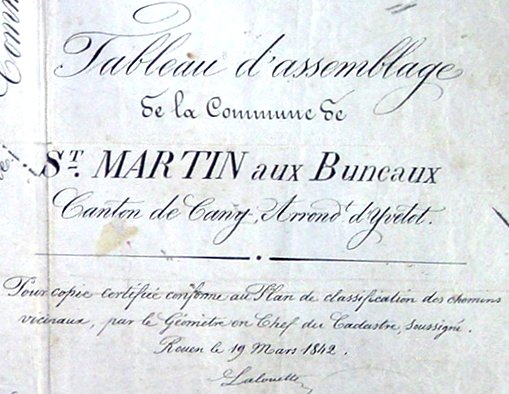 Tableau d'assemblage
de la Commune de
ST. MARTIN aux Buneaux
Canton de Cany, Arrond.t d'Yvetot.
Pour copie certifiée conforme au Plan de classification des chemins
vicinaux, par le Géomètre en Chef du Cadastre, soussigné.
Rouen le 19 Mars 1842.
Lalouette